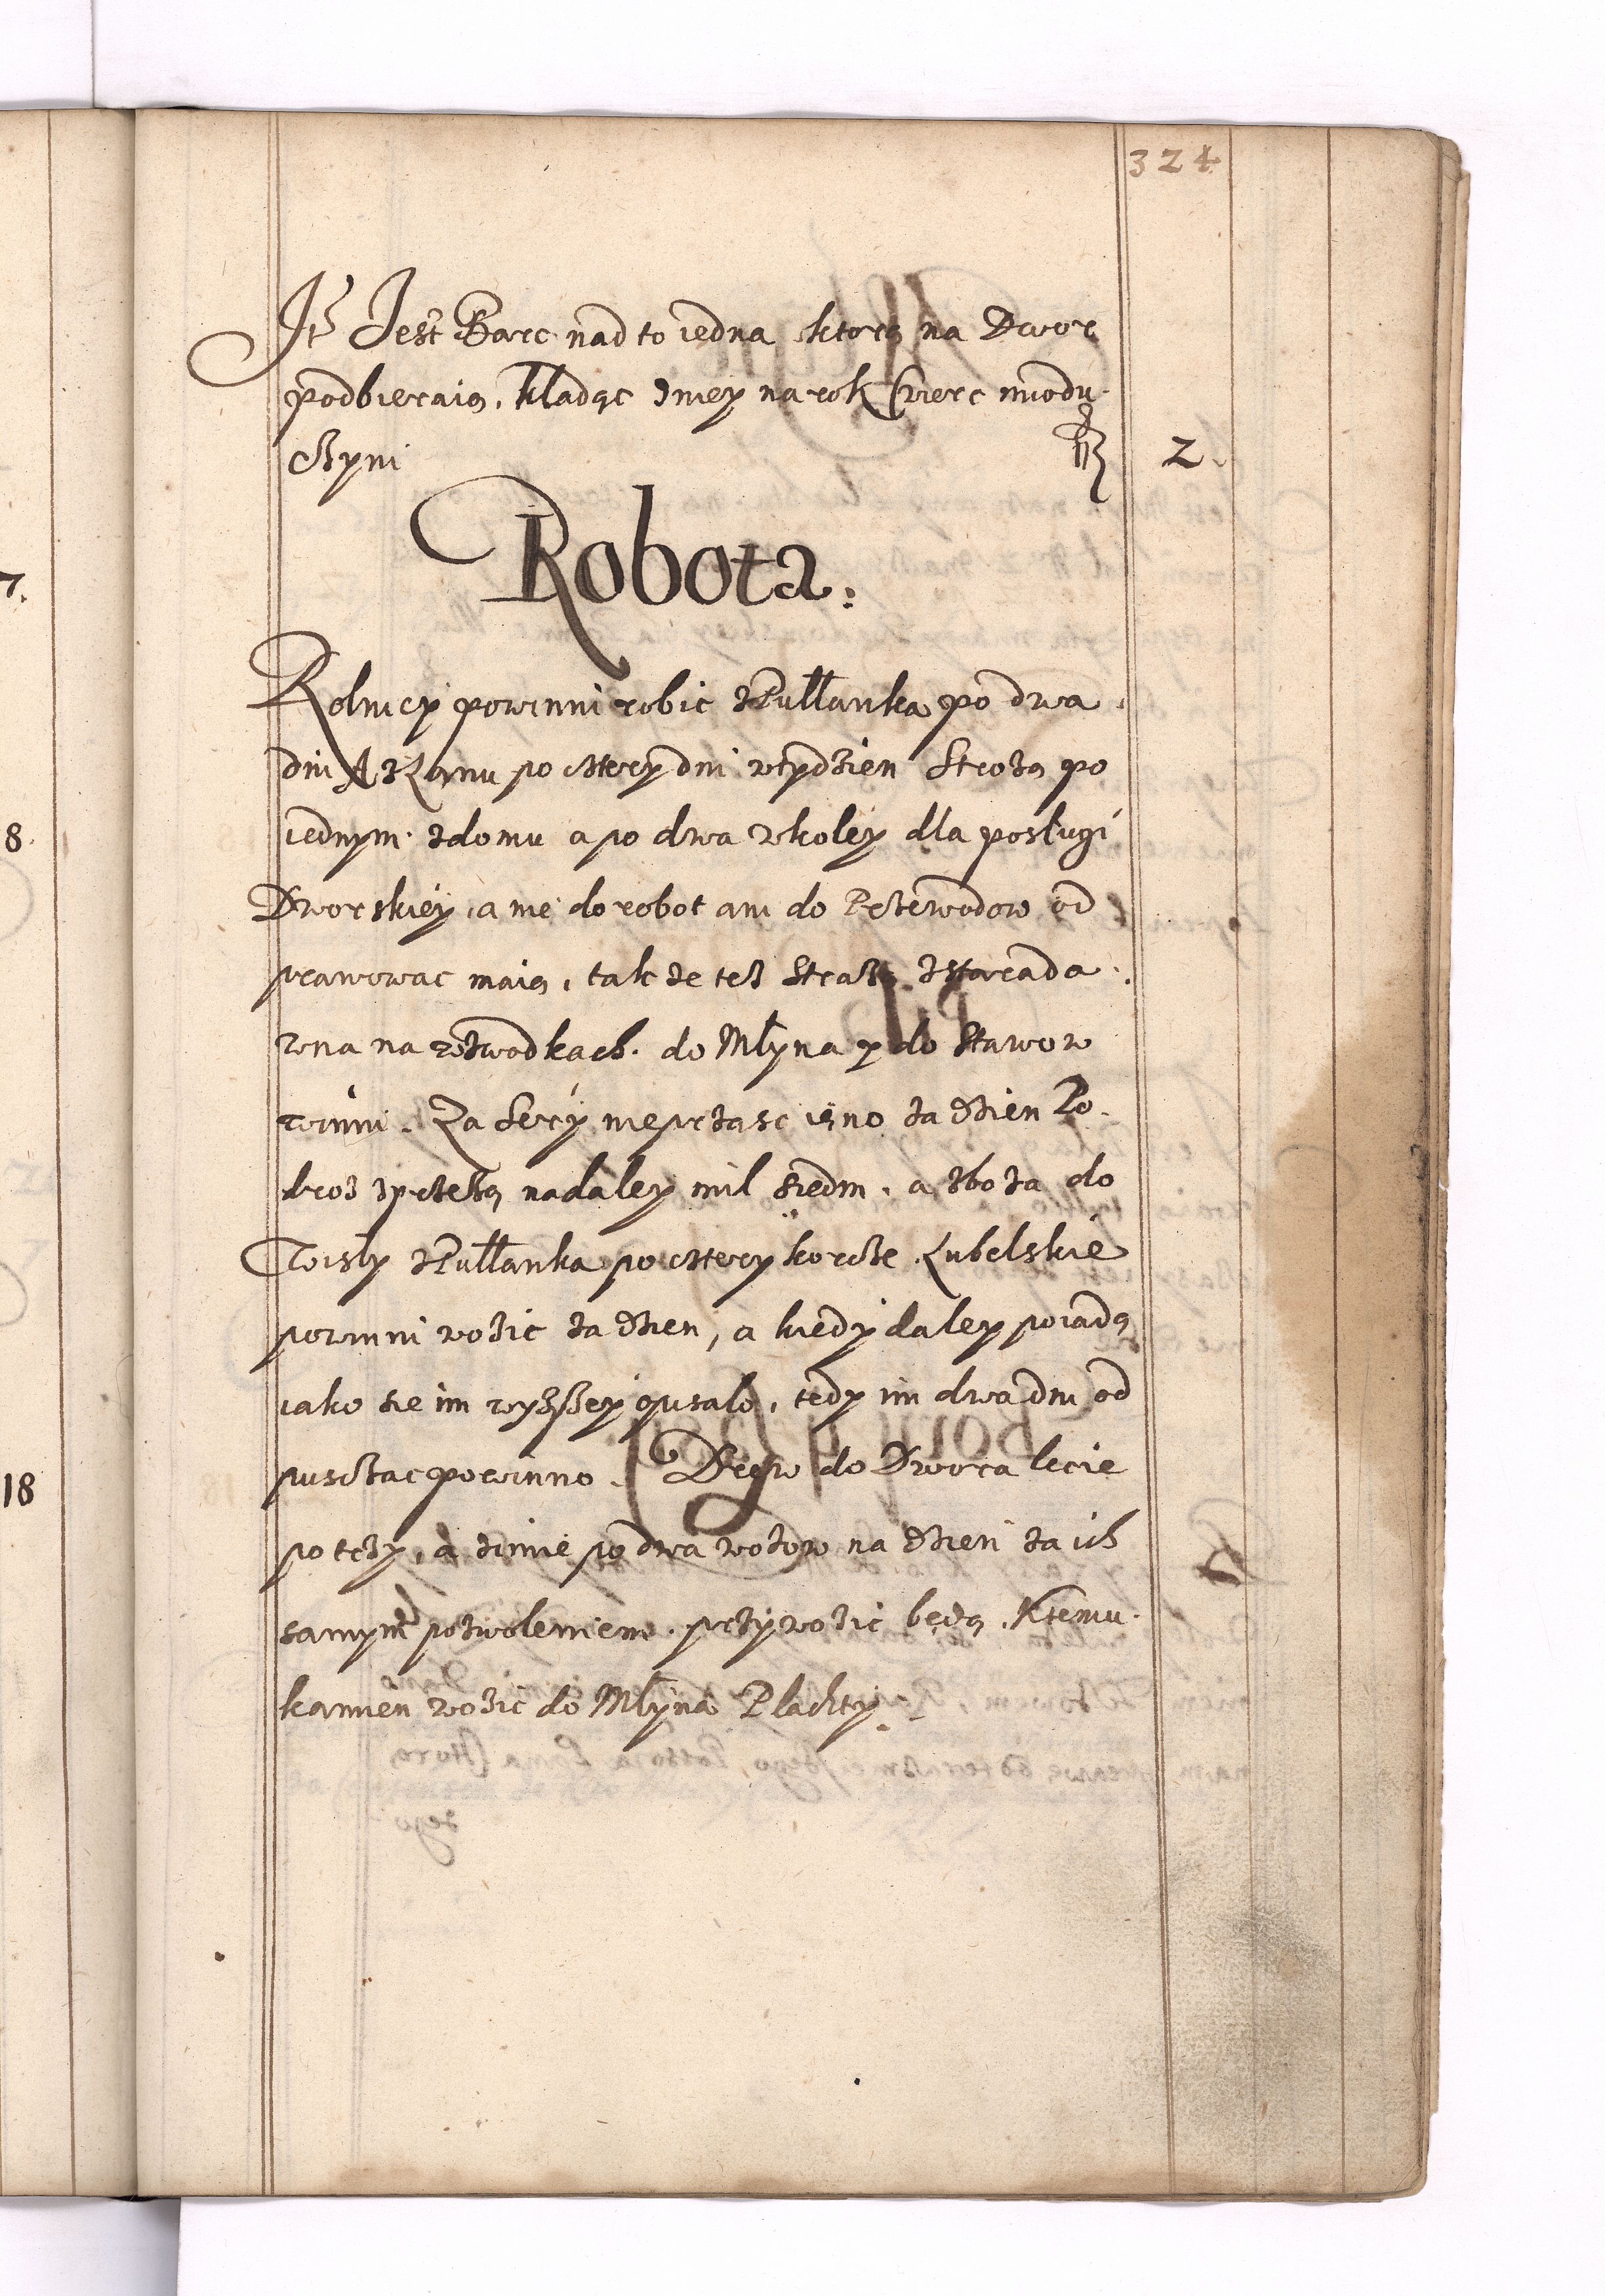 324
Jt Jest Barc nad to iedna ktorą na Dwor
podbieraią. Kładąc zniey na rok Czwierc miodu
czyni fl 2.
Robota.
Rolnicy powinni robic z Pułłanka po dwa
dni A z Łanu po cztery dni w tydzien Strożą po
iednym z domu a po dwa w koley dla posługi
Dworskiey, a nie do robot ani do Przewodow od
prawowac maią, tak ze tez Strożą
na do Młyna y do Stawow
winni. Za Sery nie prząsc ięno za dzien Po
droz nadaley mil siedm, a zboza do
Wisly z Pułłanka po cztery korcze Lubelskie
powinni wozic za dzien, a kiedy daley poiadą
iako sie im wyzszey opisalo, tedy im dwa dni od
pusczac powinno. Drew do Dwora lecie
po trzy, a zimie po dwa wozow na dzien za ich
samym pozwoleniem przywozic będą. Ktemu
kamien wozic do Młyna Plachty.
7.
8.
18